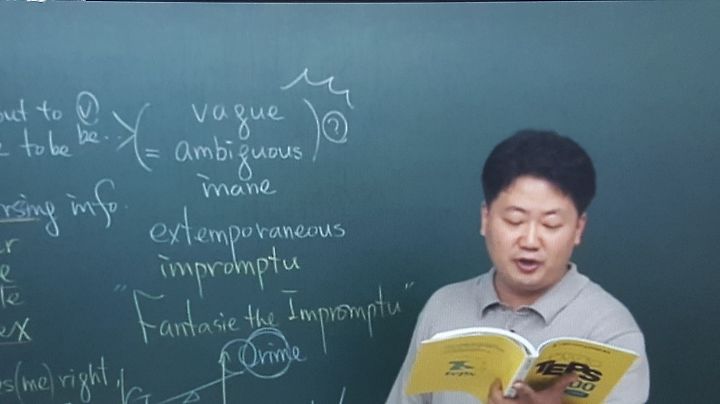 out to V
to be be..
vague
= ambiguous ?
inane
rsing info.
extemporaneous
impromptu
"Fantasie the Impromptu"
Orime
s(me) right,
TEPS
teps